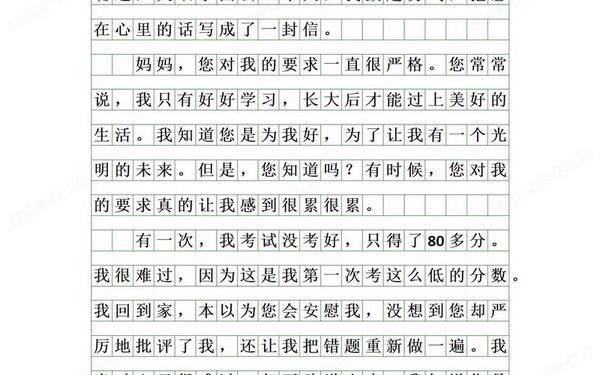 在心里的话写成了一封信。
妈妈，您对我的要求一直很严格。您常常
说，我只有好好学习，长大后才能过上美好的
生活。我知道您是为我好，为了让我有一个光
明的未来。但是，您知道吗？有时候，您对我
的要求真的让我感到很累很累。
有一次，我考试没考好，只得了80多分。
我很难过，因为这是我第一次考这么低的分数。
我回到家，本以为您会安慰我，没想到您却严
厉地批评了我，还让我把错题重新做一遍。我